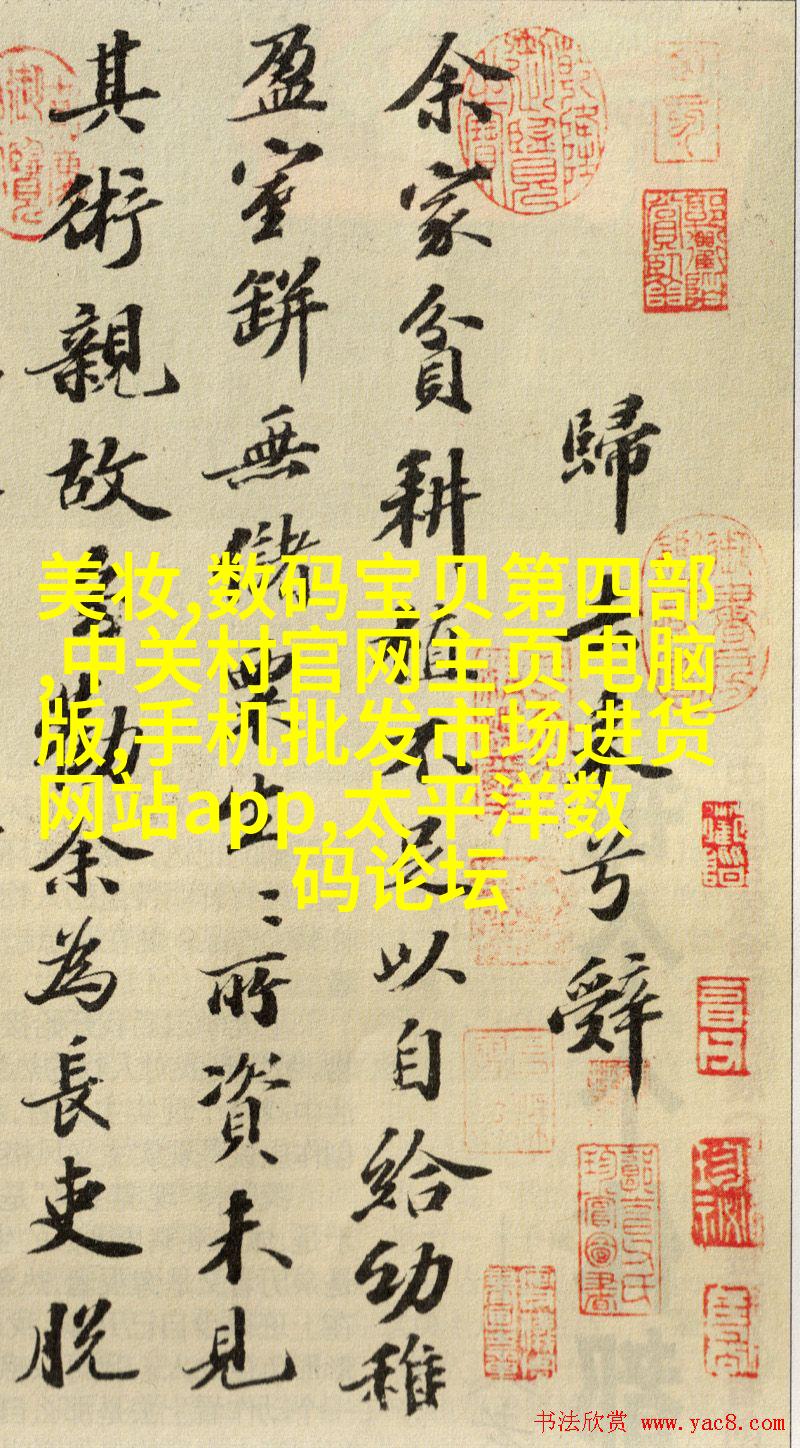 歸去來兮辭
余家貧耕植不足以自給幼稚
盈室缾無儲粟生〻所資未見
其術親故多勸余為長吏脫
美妆,数码宝贝第四部
,中关村官网主页电脑
版,手机批发市场进货
网站app,太平洋数
码论坛
书法欣赏 www.yac8.com